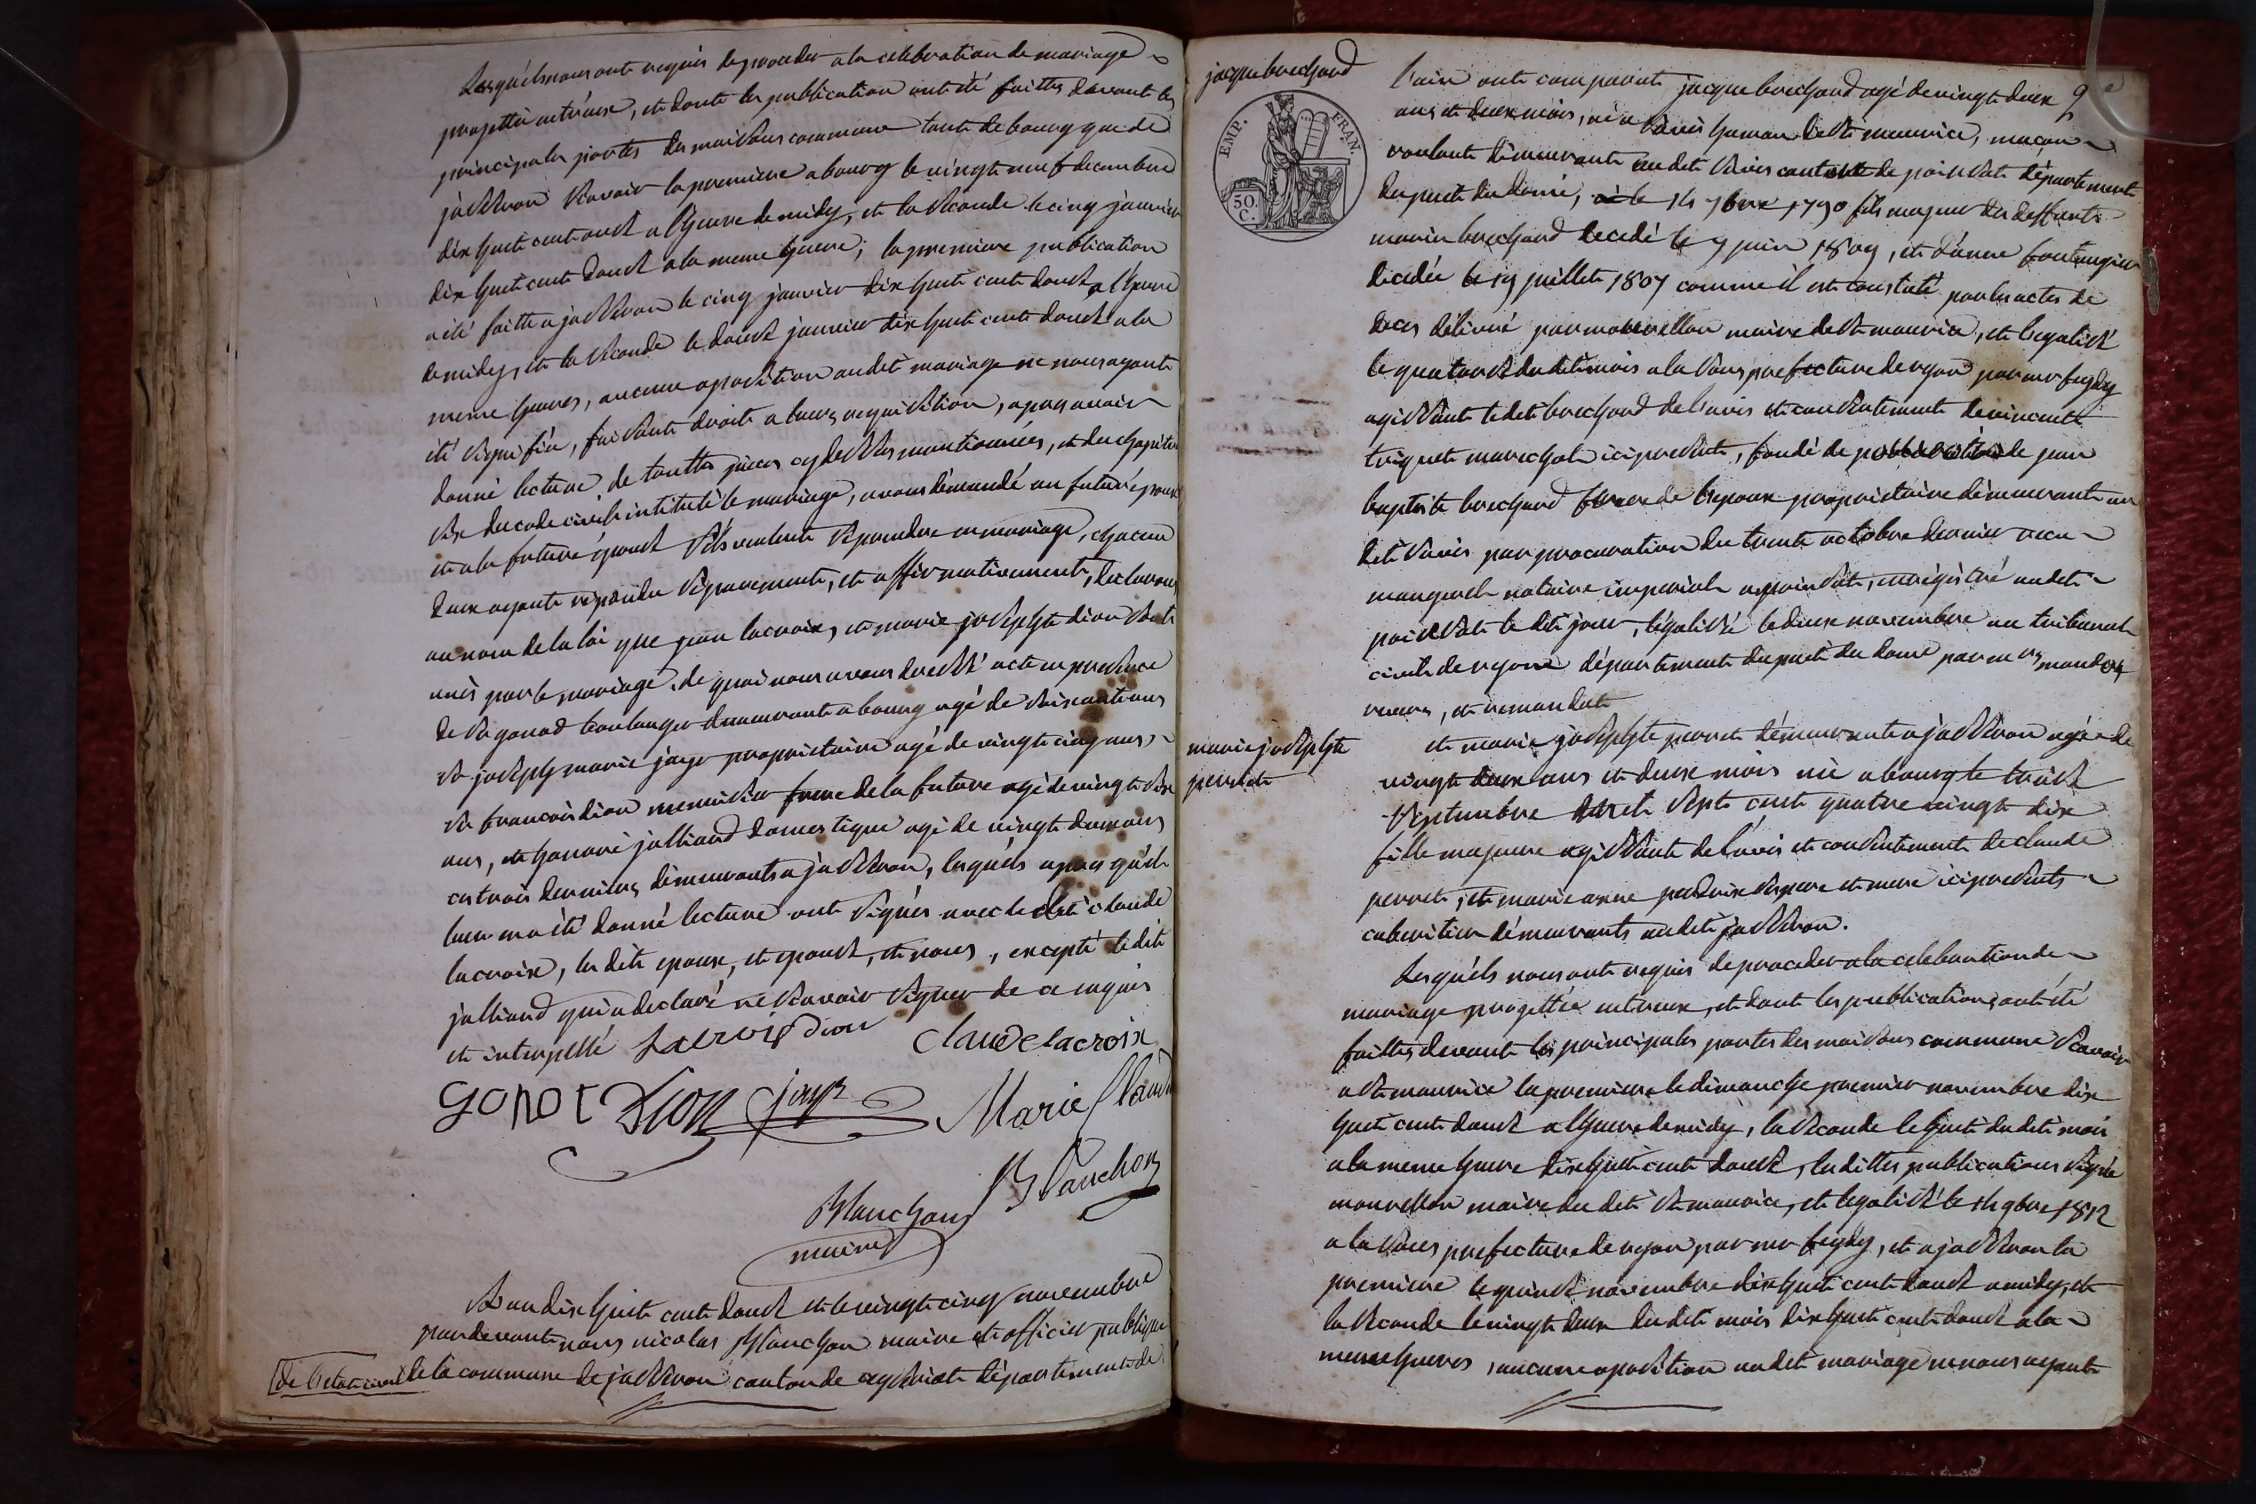 Lesquels nous ont requis de proceder a la celebration de mariage
projetté entr'eux, et dont les publication ont été faittes devant les
principales portes des maisons commune tant de bourg que de
jasseron scavoir la premiere a bourg le vingt neuf decembre
dix huit cent onze a l'heure de midy, et la seconde le cinq janvier
dix huit cent douze a la meme heure; la premiere publication
a été faitte a jasseron le cinq janvier dix huit cent douze a l'heure
de midy, et la seconde le douze janvier dix huit cent douze a la
meme heures, aucune oposition audit mariage ne nous ayant
été signifiée, faisant droit a leurs requisition, apres avoir
donné lecture de touttes pieces cy dessus mentionnées, et du chapitre
six du code civil intitulé le mariage, avons démandé au futur époux
et a la future épouse s'ils veulent se prendre en mariage, chacun
deux ayant répondu séparement, et affirmativement, declarons
au nom de la loi que jean lacroix, et marie josephte dion sont
unis par le mariage, de quoi nous avons dressé acte en presence
de gonod boulanger demeurant a bourg agé de soixante ans
joseph marie jayr proprietaire agé de vingt cinq ans,
françois dion menuisier frere de la future agé de vingt six
ans, et honoré julliard domestique agé de vingt deux ans
ces trois derniers démeurants a jasseron, lesquels apres qu'il
leur en a été donné lecture ont signés avec le dit claude
lacroix, les dits epoux, et epouse, et nous, excepté ledit
julliard qui a declaré ne scavoir signer de ce requis
et interpellé Lacroix Dion Claude lacroix
gonod Dion jayr Marie Claud
Blanchon
Blanchon
maire
L'an dix huit cent douze et le vingt cinq novembre
pardevant nous nicolas Blanchon maire et officier publique
de l'etat civil de la commune de jasseron canton de ceyzeriat département de
jacque brechard
EMP. FRAN.
50. C.
l'ain ont comparut jacque brechard agé de vingt deux 9
ans et deux mois, né a hameau de St maurice, maçon
roulant démeurant audit canton de département
du puit du dome, le 14 7bre 1790 fils majeur des deffunts
marien brechard decedé le 9 juin 1809, et d'anne
decedée le 19 juillet 1807 comme il est constaté par les actes de
deces délivré par maire de St maurice, et legalisé
le quatorze du dit mois a la sous prefecture de ryom par mr feydy
agissant ledit brechard de l'avis et consentement de vincent
triquet marechal ici present, fondé de jean
baptiste brechard frere de l'epoux proprietaire démeurant au
dit par procuration du trente octobre dernier recu
notaire imperial enregistré audit
le dit jour, légalisé le deux novembre au tribunal
civil de ryom département du puit du dome par mrs
et
marie josephte
perret
et marie josephte perret démeurant a jasseron agée de
vingt deux ans et deux mois née a bourg le treize
septembre sept cent quatre vingt dix
fille majeure agissante de l'avis et consentement de claude
perret, et marie anne ses pere et mere ici presents
démeurants audit jasseron.
Lesquels nous ont requis de proceder a la celebration de
mariage projettée entreux, et dont les publications ont été
faittes devant les principales portes des maisons commune scavoir
a St maurice la premiere le dimanche premier novembre dix
huit cent douze a l'heure de midy, la seconde le huit du dit mois
a la meme heure dix huit cent douze, les dittes publications signée
maire du dit St maurice, et legalisé le 14 9bre 1812
a la sous prefecture de ryom par mr feydy, et a jasseron la
premiere le quinze novembre dix huit cent douze a midy, et
la seconde le vingt deux du dit mois dix huit cent douze a la
meme heures, aucune oposition audit mariage ne nous ayant